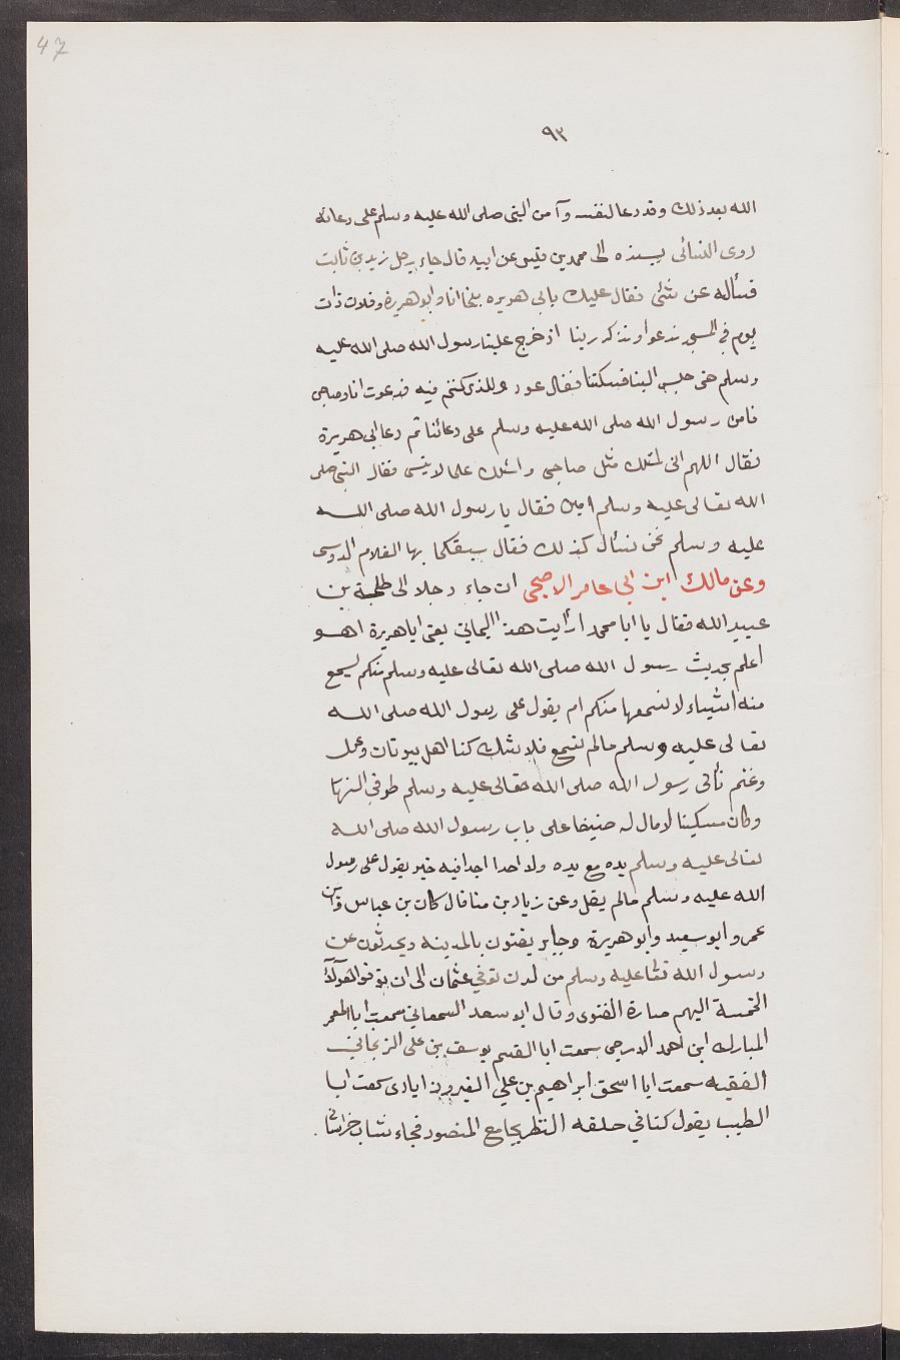 47
٩٣
الله بعد ذلك وقد دعا لنفسه وآمن البنى صلى الله عليه وسلم على دعائه
روى النسائى بسنده الى محمد بن قيس عن ابيه قال جاء رجل زيد بن ثابت
فسأله عن شئى فقال عليك بابى هريره بينما انا وابو هريرة وفلان ذات
يوم في المسجد ندعوا ونذكر ربنا اذ خرج علينا رسول الله صلى الله عليه
وسلم حتى جلس الينا فسكتنا فقال عودوا للذى كنتم فيه فدعوت انا وصاحبى
فامن رسول الله صلى الله عليه وسلم على دعائنا ثم دعا ابى هريرة
فقال اللهم انى اسئلك مثل صاحبى واسئلك علما لا ينسى فقال النبى صلى
الله تعالى عليه وسلم امين فقال يا رسول الله صلى الله
عليه وسلم نحن نسأل كذلك فقال سبقكما بها الغلام الدوسى
وعن مالك ابن ابى عامر الاصبحى ان جاء رجلا الى طلحة بن
عبيد الله فقال يا ابا محمد ارأيت هذا اليمانى يعنى ابا هريرة اهو
اعلم بحديث رسول الله صلى الله تعالى عليه وسلم منكم نسمع
منه اشياء لا نسمعها منكم ام يقول على رسول الله صلى الله
تعالى عليه وسلم مالم نسمع فلا شك كنا اهل بيوتات وعمل
وغنم نأتى رسول الله صلى الله تعالى عليه وسلم طرفي النهار
وكان مسكينا لا مال له ضيفا على باب رسول الله صلى الله
تعالى عليه وسلم يده مع يده ولا احدا اجد فيه خير يقول على رسول
الله عليه وسلم مالم يقل وعن زياد بن منا قال كان بن عباس وابن
عمر وابو سعيد وابو هريرة وجابر يفتون بالمدينه ويحدثون عن
رسول الله عليه وسلم من لدن توفي عثمان الى ان توفوا هؤلاء
الخمسة اليهم صارة الفتوى وقال ابو سعد السمعاني سمعت ابا المعمر
المبارك ابن احمد الازجى سمعت ابا القسم يوسف بن على الزنجاني
الفقيه سمعت ابا اسحق ابراهيم بن علي الفيروز ابادى سمعت ابا
الطيب يقول كنا في حلقه النظر بجامع المنصور فجاء شاب خراسانى